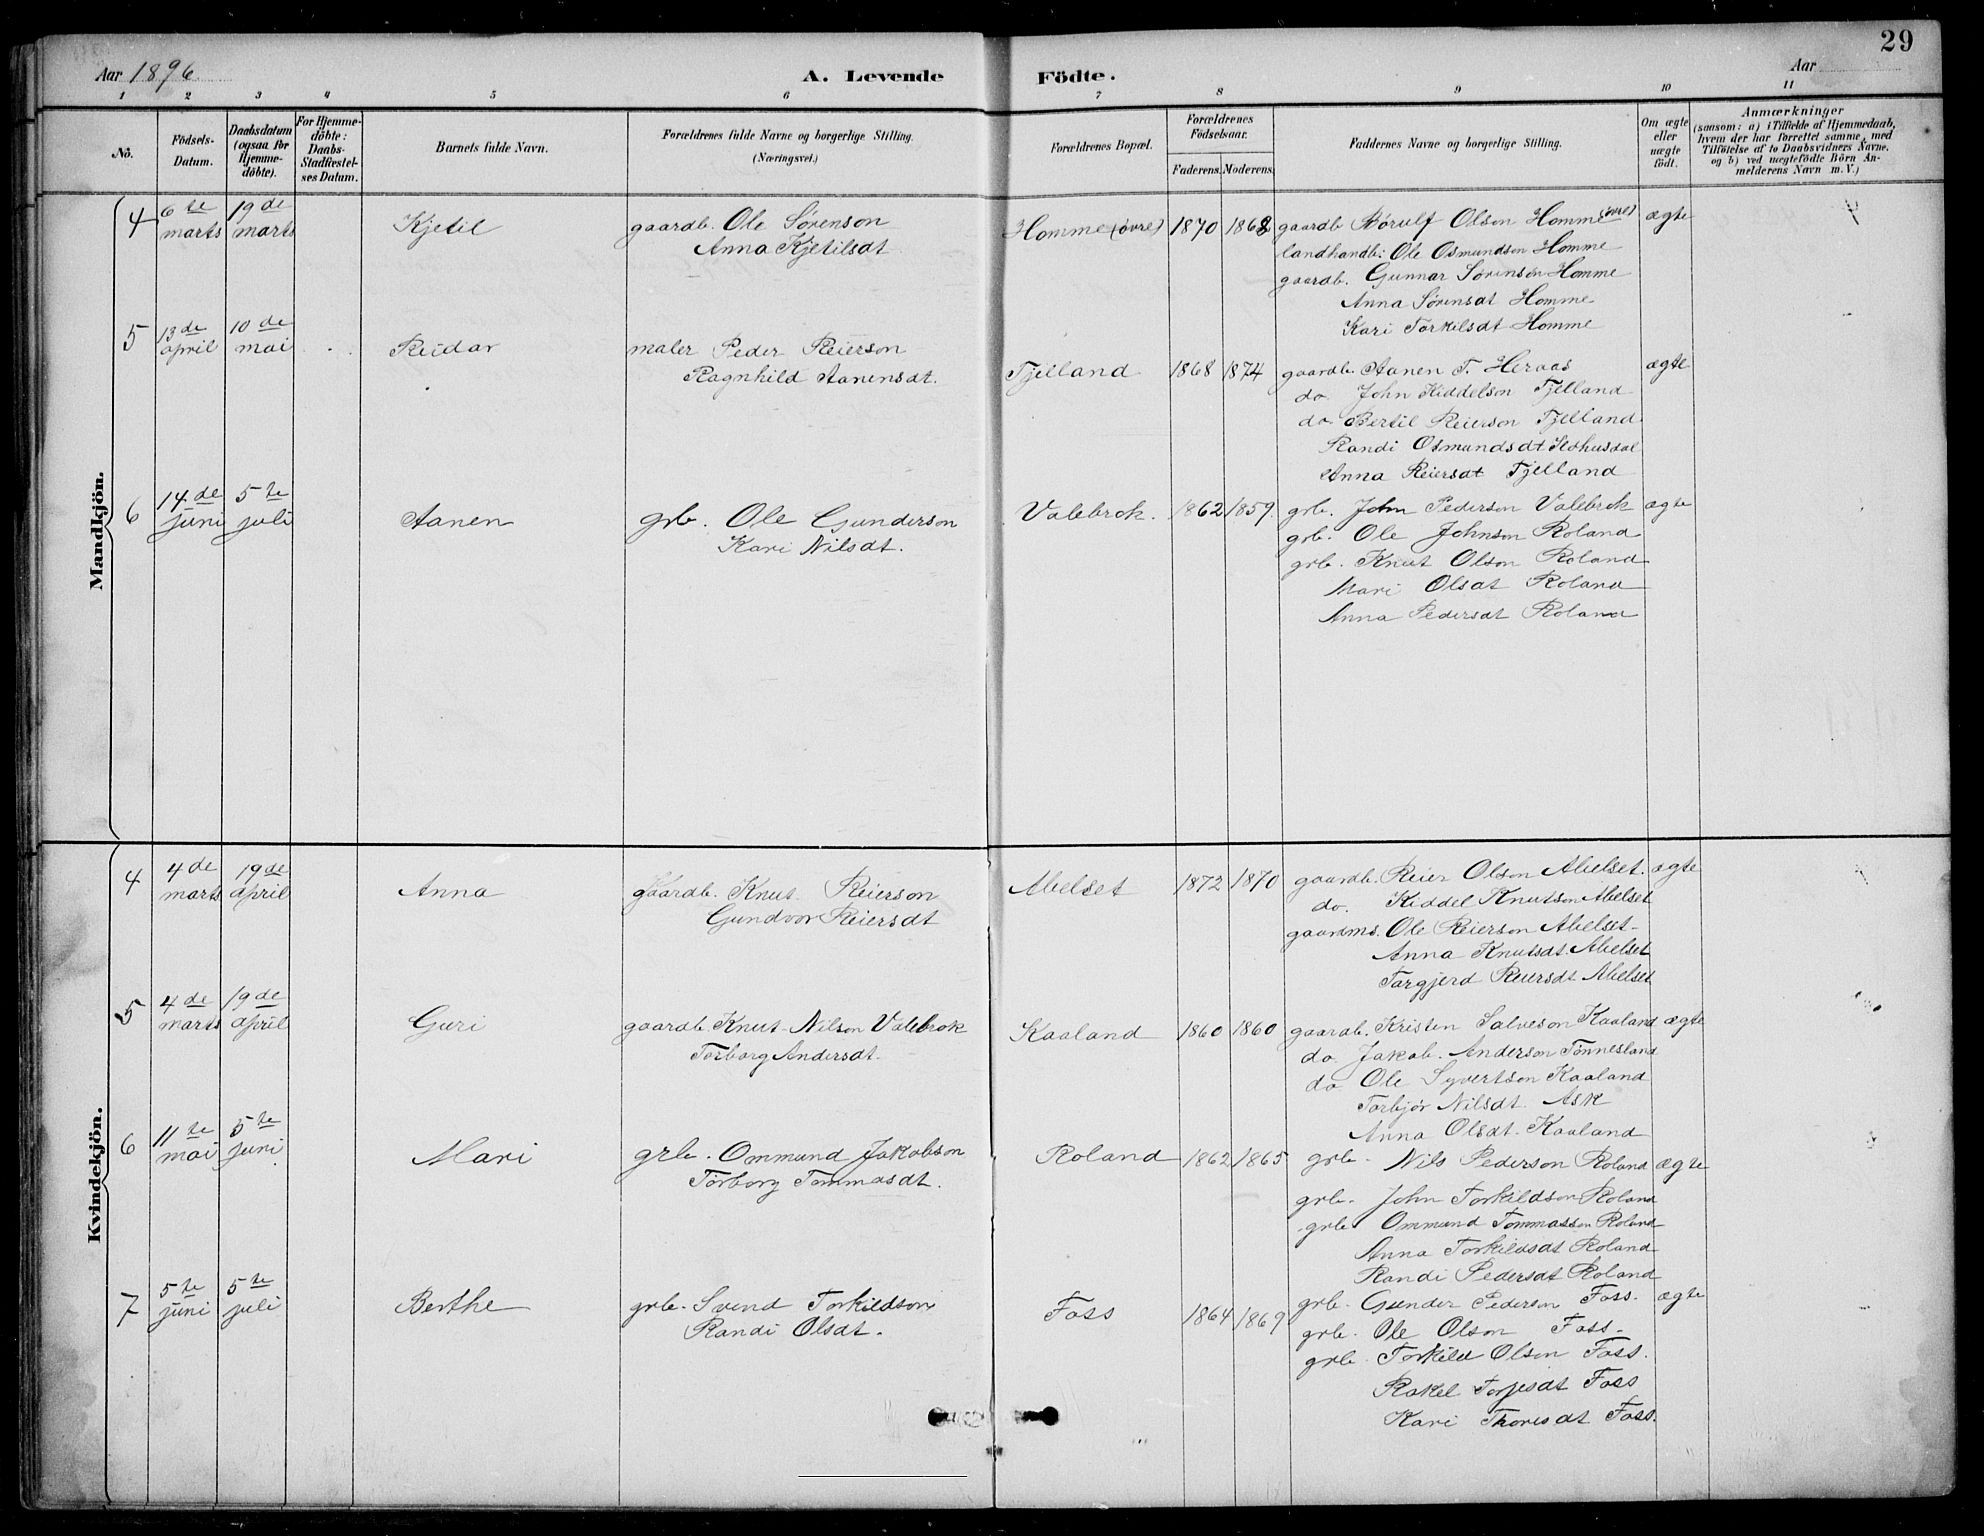 29
Aar 1896. A. Levende Födte. Aar
1 2 3 4 5 6 7 8 9 10 11
No. Födsels-Datum. Daabsdatum (ogsaa for Hjemme-döbte). For Hjemme-döbte: Daabs-Stadfæstel-ses Datum. Barnets fulde Navn. Forældrenes fulde Navne og borgerlige Stilling. (Næringsvei.) Forældrenes Bopæl. Forældrenes Födselsaar. Faderens. Moderens. Faddernes Navne og borgerlige Stilling. Om ægte eller uægte födt. Anmærkninger (saasom: a) i Tilfælde af Hjemmedaab, hvem der har forrettet samme, med Tilföielse af to Daabsvidners Navne, og b) ved uægtefödte Börn An-melderens Navn m. V.)
Mandkjön.
4 6te marts 19de marts Kjetil gaardb. Ole Sørenson Homme (øvre) 1870 1868 gaardb Børulf Olson Homme (øvre) ægte
Anna Kjetilsdt landhandl: Ole Osmundson Homme
gaardb. Gunnar Sørenson Homme
Anna Sørensdt Homme
Kari Torkilsdt Homme
5 13de april 10de mai Reidar maler Peder Reierson Tjelland 1868 1874 gaardb. Aanen T. Heraas ægte
Ragnhild Aanensdt. do John Kiddelson Tjelland
do Bertil Reierson Tjelland
Randi Osmundsdt
Anna Reiersdt Tjelland
6 14de juni 5te juli Aanen grb. Ole Gunderson Valebrok. 1862 1859. grb. John Pederson Valebrok ægte
Kari Nilsdt. grb. Ole Johnson Roland
grb. Knut Olson Roland
Mari Olsdt Roland
Anna Pedersdt Roland
Kvindekjön.
4 4de marts 19de april Anna gaardb. Knut Reierson Abelset 1872 1870 gaardb. Reier Olson Abelset. ægte
Gundvor Reiersdt do. Kiddel Knutson Abelset
gaardms. Ole Reierson Abelset
Anna Knutsdt. Abelset
Targjerd Reiersdt Abelset
5 4de marts 19de april Guri gaardb. Knut Nilson Valebrok Kaaland 1860 1860 gaardb. Kristen Salveson Kaaland ægte
Torborg Andersdt. do Jakob Anderson Tønnesland
do Ole Syvertson Kaaland
Torbjør Nilsdt. Ask
Anna Olsdt. Kaaland
6 11te mai 5te juni Mari grb. Ommund Jakobson Roland 1862 1865 grb. Nils Pederson Roland ægte
Torborg Tommasdt. grb. John Torkildson Roland
grb Ommund Tommasson Roland
Anna Torkildsdt Roland
Randi Pedersdt Roland
7 5te juni 5te juli Berthe grb. Svend Torkildson Foss 1864 1869 grb. Gunder Pederson Foss. ægte
Randi Olsdt. grb. Ole Olson Foss.
grb. Torkild Olson Foss.
Rakel Torjusdt Foss
Kari Thoresdt Foss.